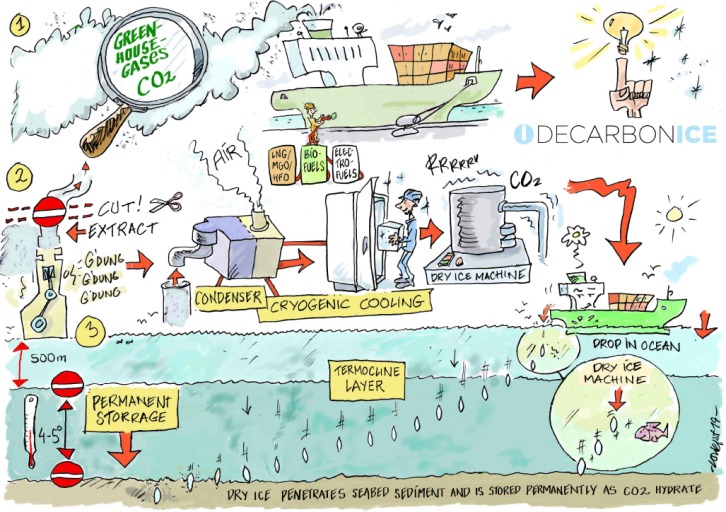 1
GREEN-
HOUSE
GASES
CO2
DECARBONICE
LNG/
MGO/
HFO
BIO-
FUELS
ELEC-
TRO-
FUELS
2
CUT!
EXTRACT
G'DUNG
G'DUNG
G'DUNG
AIR
CONDENSER
CRYOGENIC COOLING
RRRRRRR
CO2
DRY ICE MACHINE
3
500m
DROP IN OCEAN
TERMOCLINE
LAYER
DRY ICE
MACHINE
PERMANENT
STORRAGE
4-5°
DRY ICE PENETRATES SEABED SEDIMENT AND IS STORED PERMANENTLY AS CO2 HYDRATE